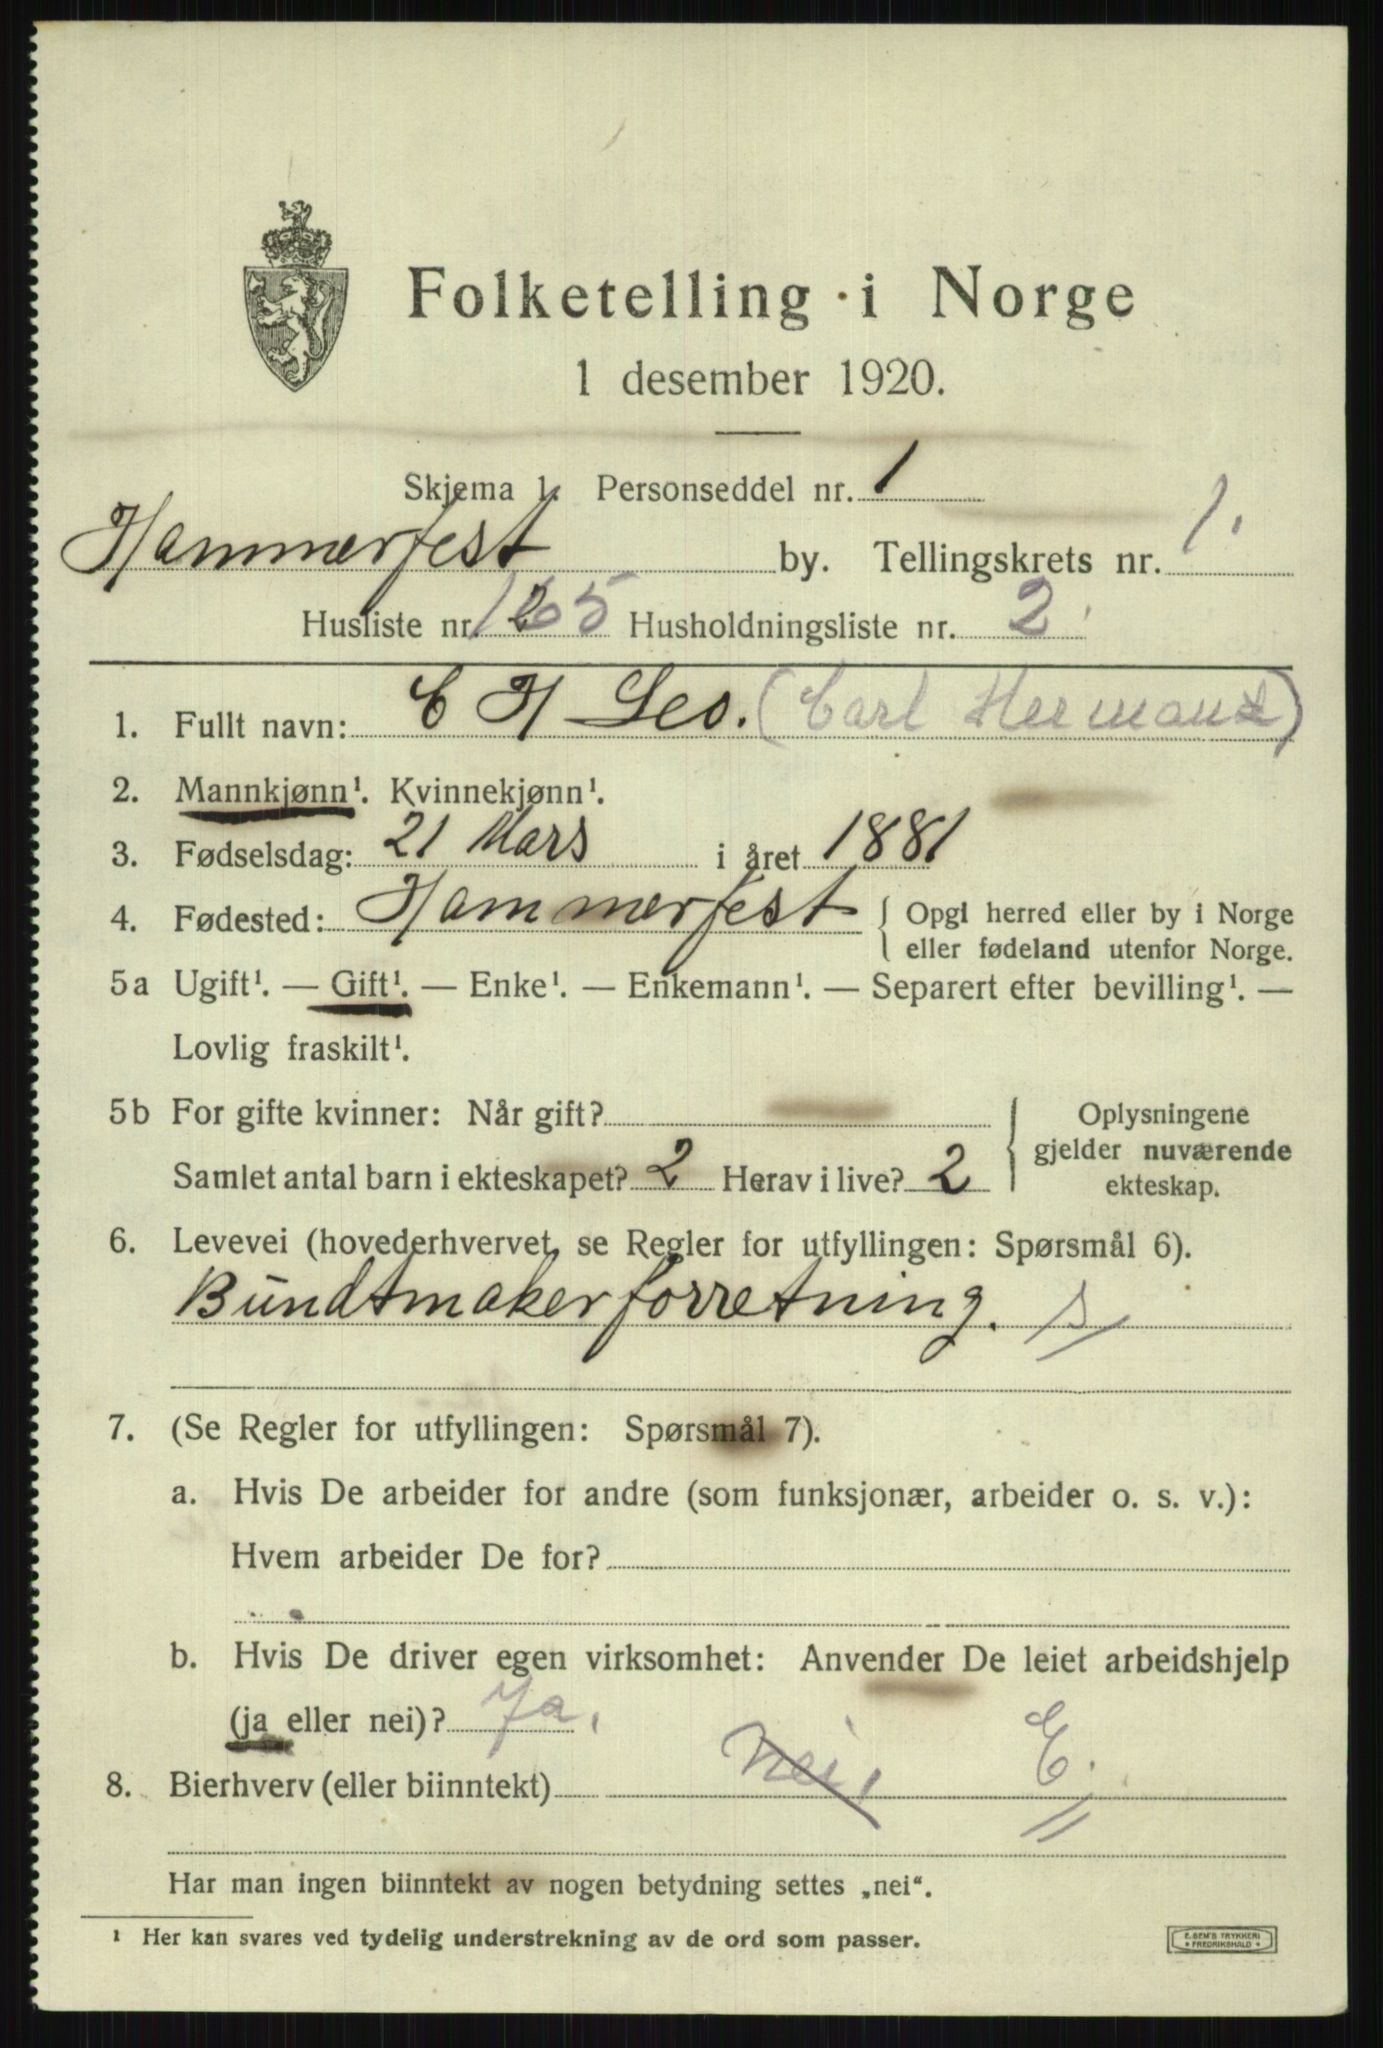 Folketelling i Norge
1 desember 1920.
Skjema 1. Personseddel nr. 1
Hammerfest by. Tellingskrets nr. 1.
Husliste nr. 165 Husholdningsliste nr. 2
1. Fullt navn: C H Leo. (Carl Herman)
2. Mannkjønn¹. Kvinnekjønn¹.
3. Fødselsdag: 21 Mars i året 1881
4. Fødested: Hammerfest { Opgi herred eller by i Norge
eller fødeland utenfor Norge.
5a Ugift¹. — Gift¹. — Enke¹. — Enkemann¹. — Separert efter bevilling¹. —
Lovlig fraskilt¹.
5b For gifte kvinner: Når gift?
Samlet antal barn i ekteskapet? 2 Herav i live? 2
Oplysningene
gjelder nuværende
ekteskap.
6. Levevei (hovederhvervet, se Regler for utfyllingen: Spørsmål 6).
Bundtmakerforretning. s
7. (Se Regler for utfyllingen: Spørsmål 7).
a. Hvis De arbeider for andre (som funksjonær, arbeider o. s. v.):
Hvem arbeider De for?
b. Hvis De driver egen virksomhet: Anvender De leiet arbeidshjelp
(ja eller nei)? Ja.
8. Bierhverv (eller biinntekt) nei. E.
Har man ingen biinntekt av nogen betydning settes „nei“.
¹ Her kan svares ved tydelig understrekning av de ord som passer.
E. SEM'S TRYKKERI
• FREDRIKSHALD •